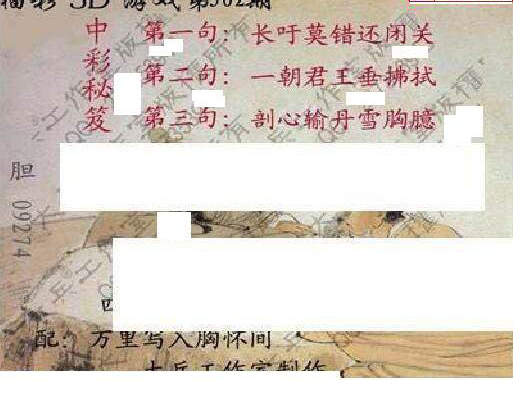 福彩3D游戏第302期
中彩秘笈
第一句：长吁莫错还闭关
第二句：一朝君王垂拂拭
第三句：剖心输丹雪胸臆
胆 09274
配：万里写入胸怀间
士兵工作室制作